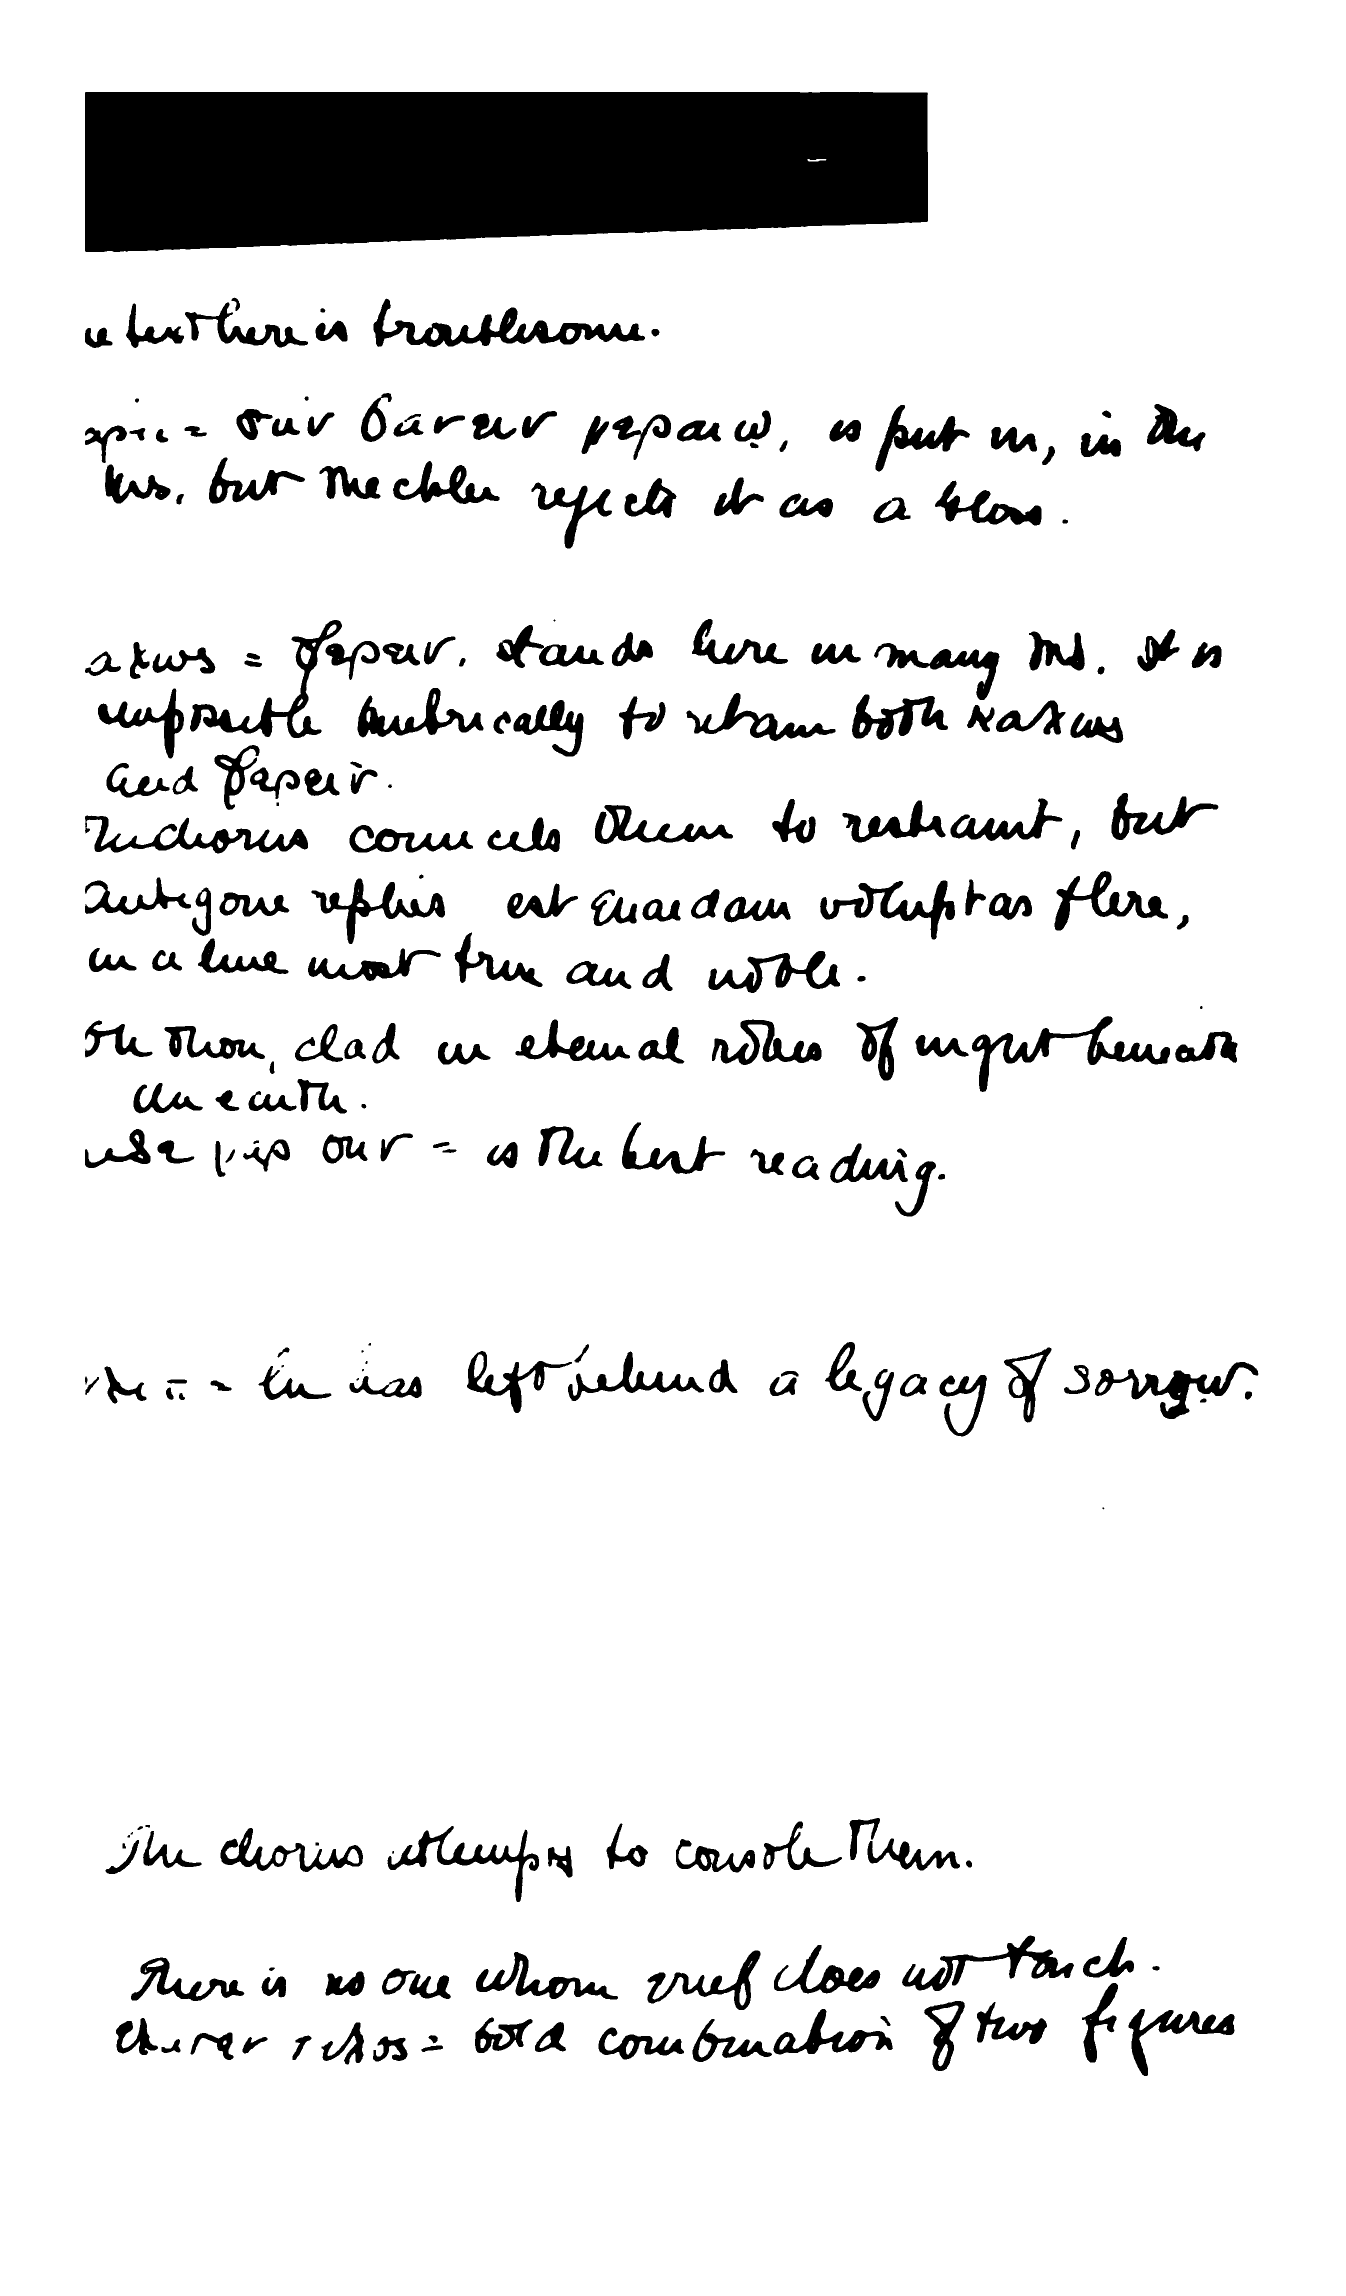 text here is troublesome.
= συν θανειν γεραιω, is put in, in the
Mss. but Meckler rejects it as a gloss.
= φερειν. stands here in many Ms. It is
impossible metrically to retain both καλως
and φερειν.
The chorus councels them to restraint, but
Antigone replies est quaedam voluptas flere,
in a line most true and noble.
Oh thou, clad in eternal robes of night beneath
the earth.
= is the best reading.
= he has left behind a legacy of sorrow.
The chorus attempts to console them.
There is no one whom grief does not touch.
= bold combination of two figures